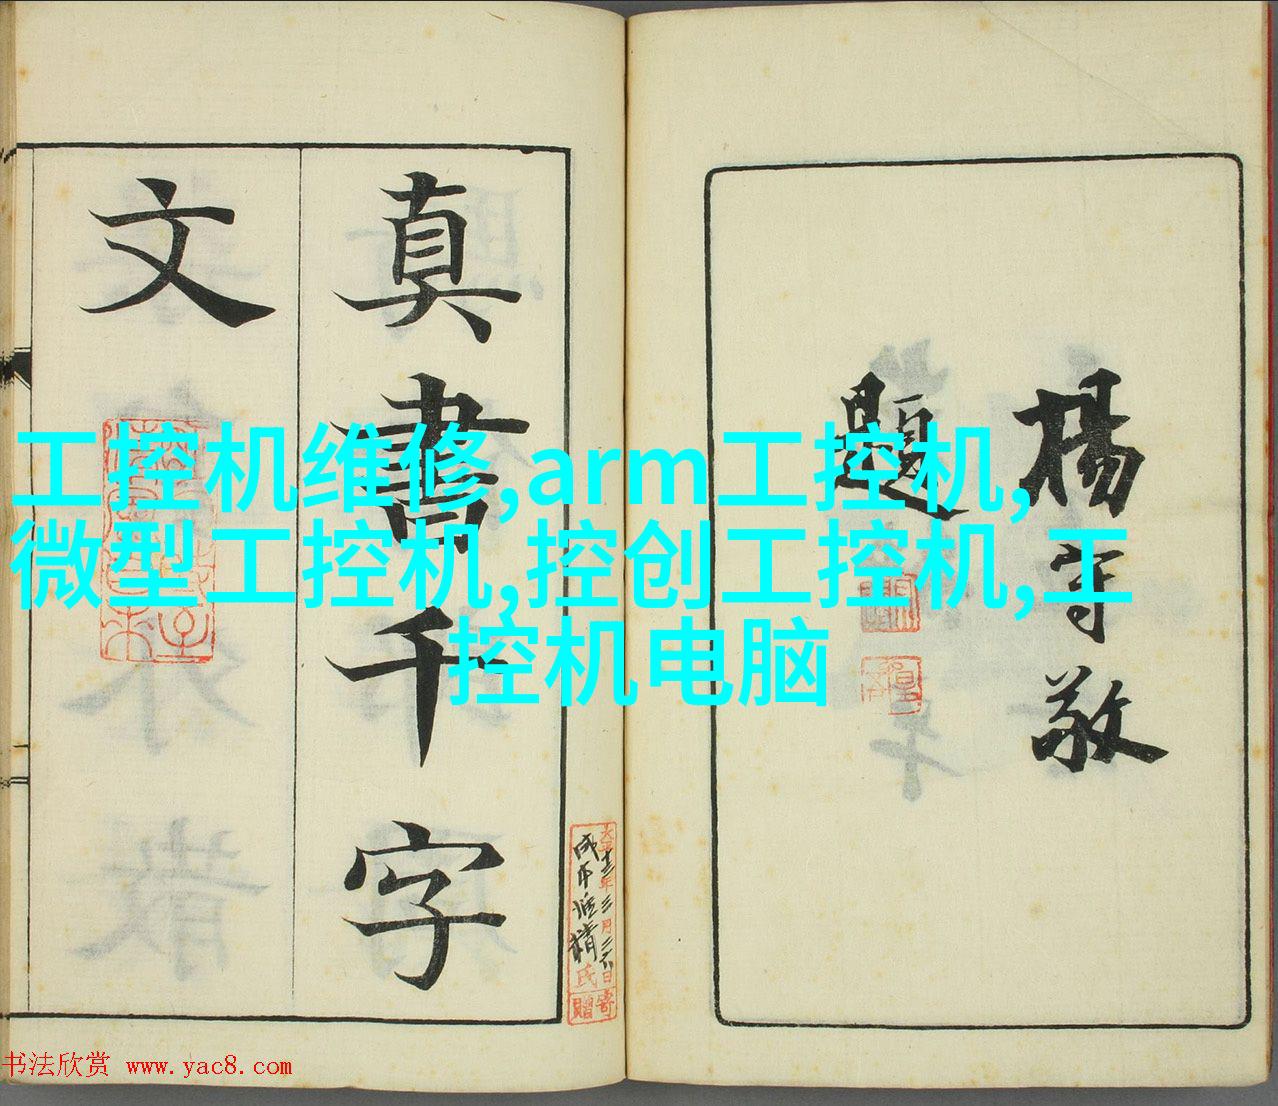 楊守敬
題
真書千字
文
工控机维修,arm工控机,
微型工控机,控创工控机,工
控机电脑
书法欣赏 www.yac8.com